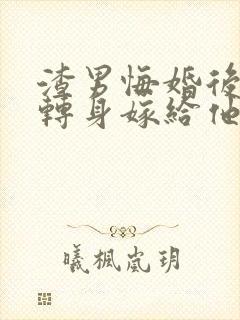 渣男悔婚後
轉身嫁給他
曦楓嵐玥